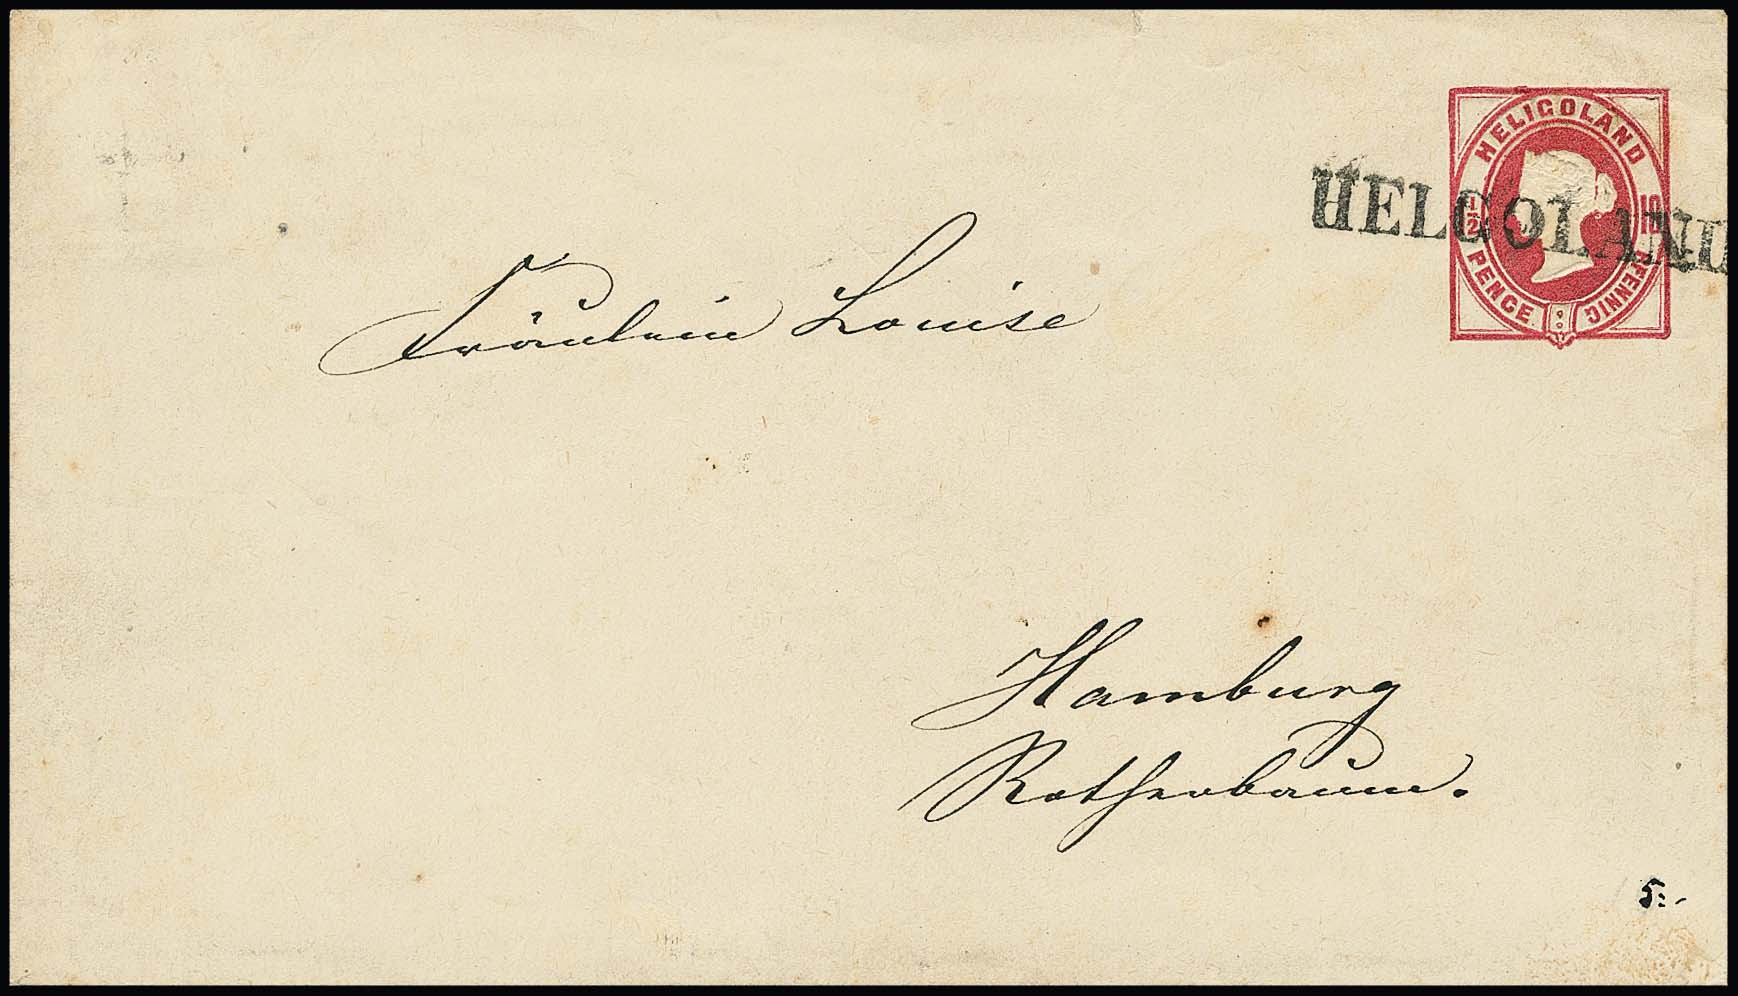 HELIGOLAND
1½ PENCE 10 PFENNIG
HELGOLAND
Fräulein Louise
Hamburg
Rothenbaum.
5:-